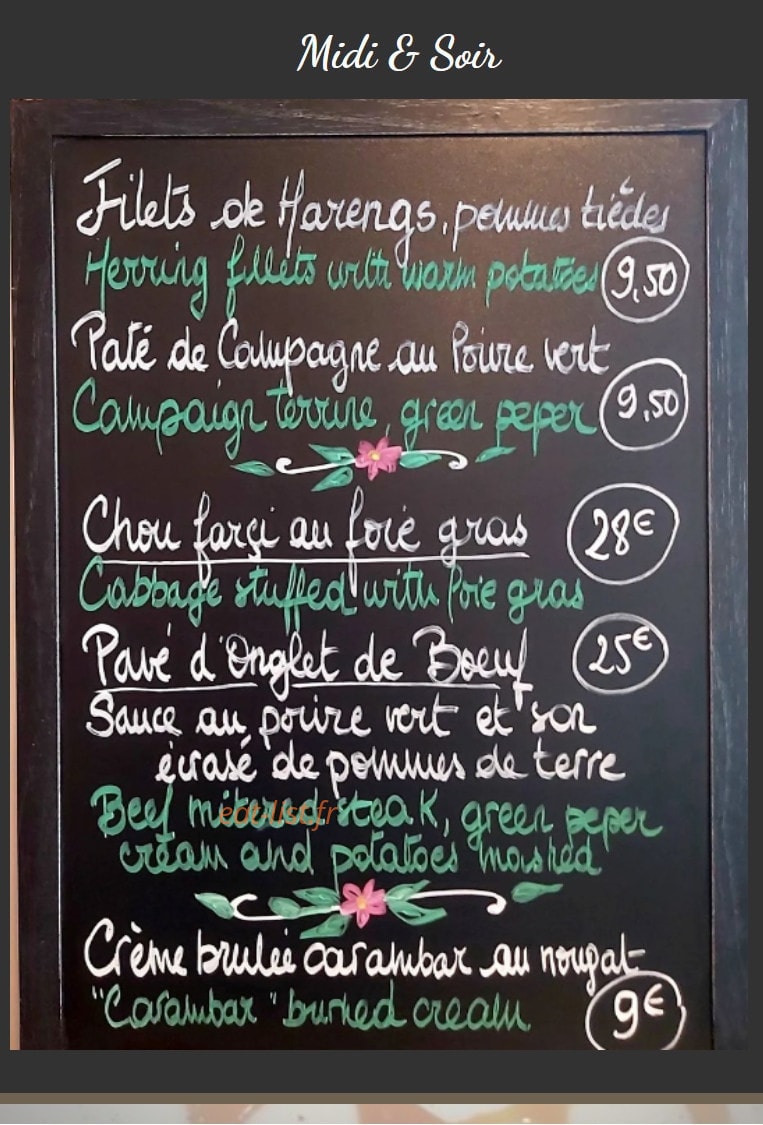 Midi & Soir
Filets de Harengs, pommes tièdes
Herring fillets with warm potatoes 9,50
Paté de Campagne au Poivre vert
Campaign terrine, green peper 9,50
Chou farçi au foie gras 28€
Cabbage stuffed with foie gras
Pavé d'Onglet de Boeuf 25€
Sauce au poivre vert et son
écrasé de pommes de terre
Beef steak, green peper
cream and potatoes mashed
eat-list.fr
Crème brulée carambar au nougat
"Carambar" burned cream 9€